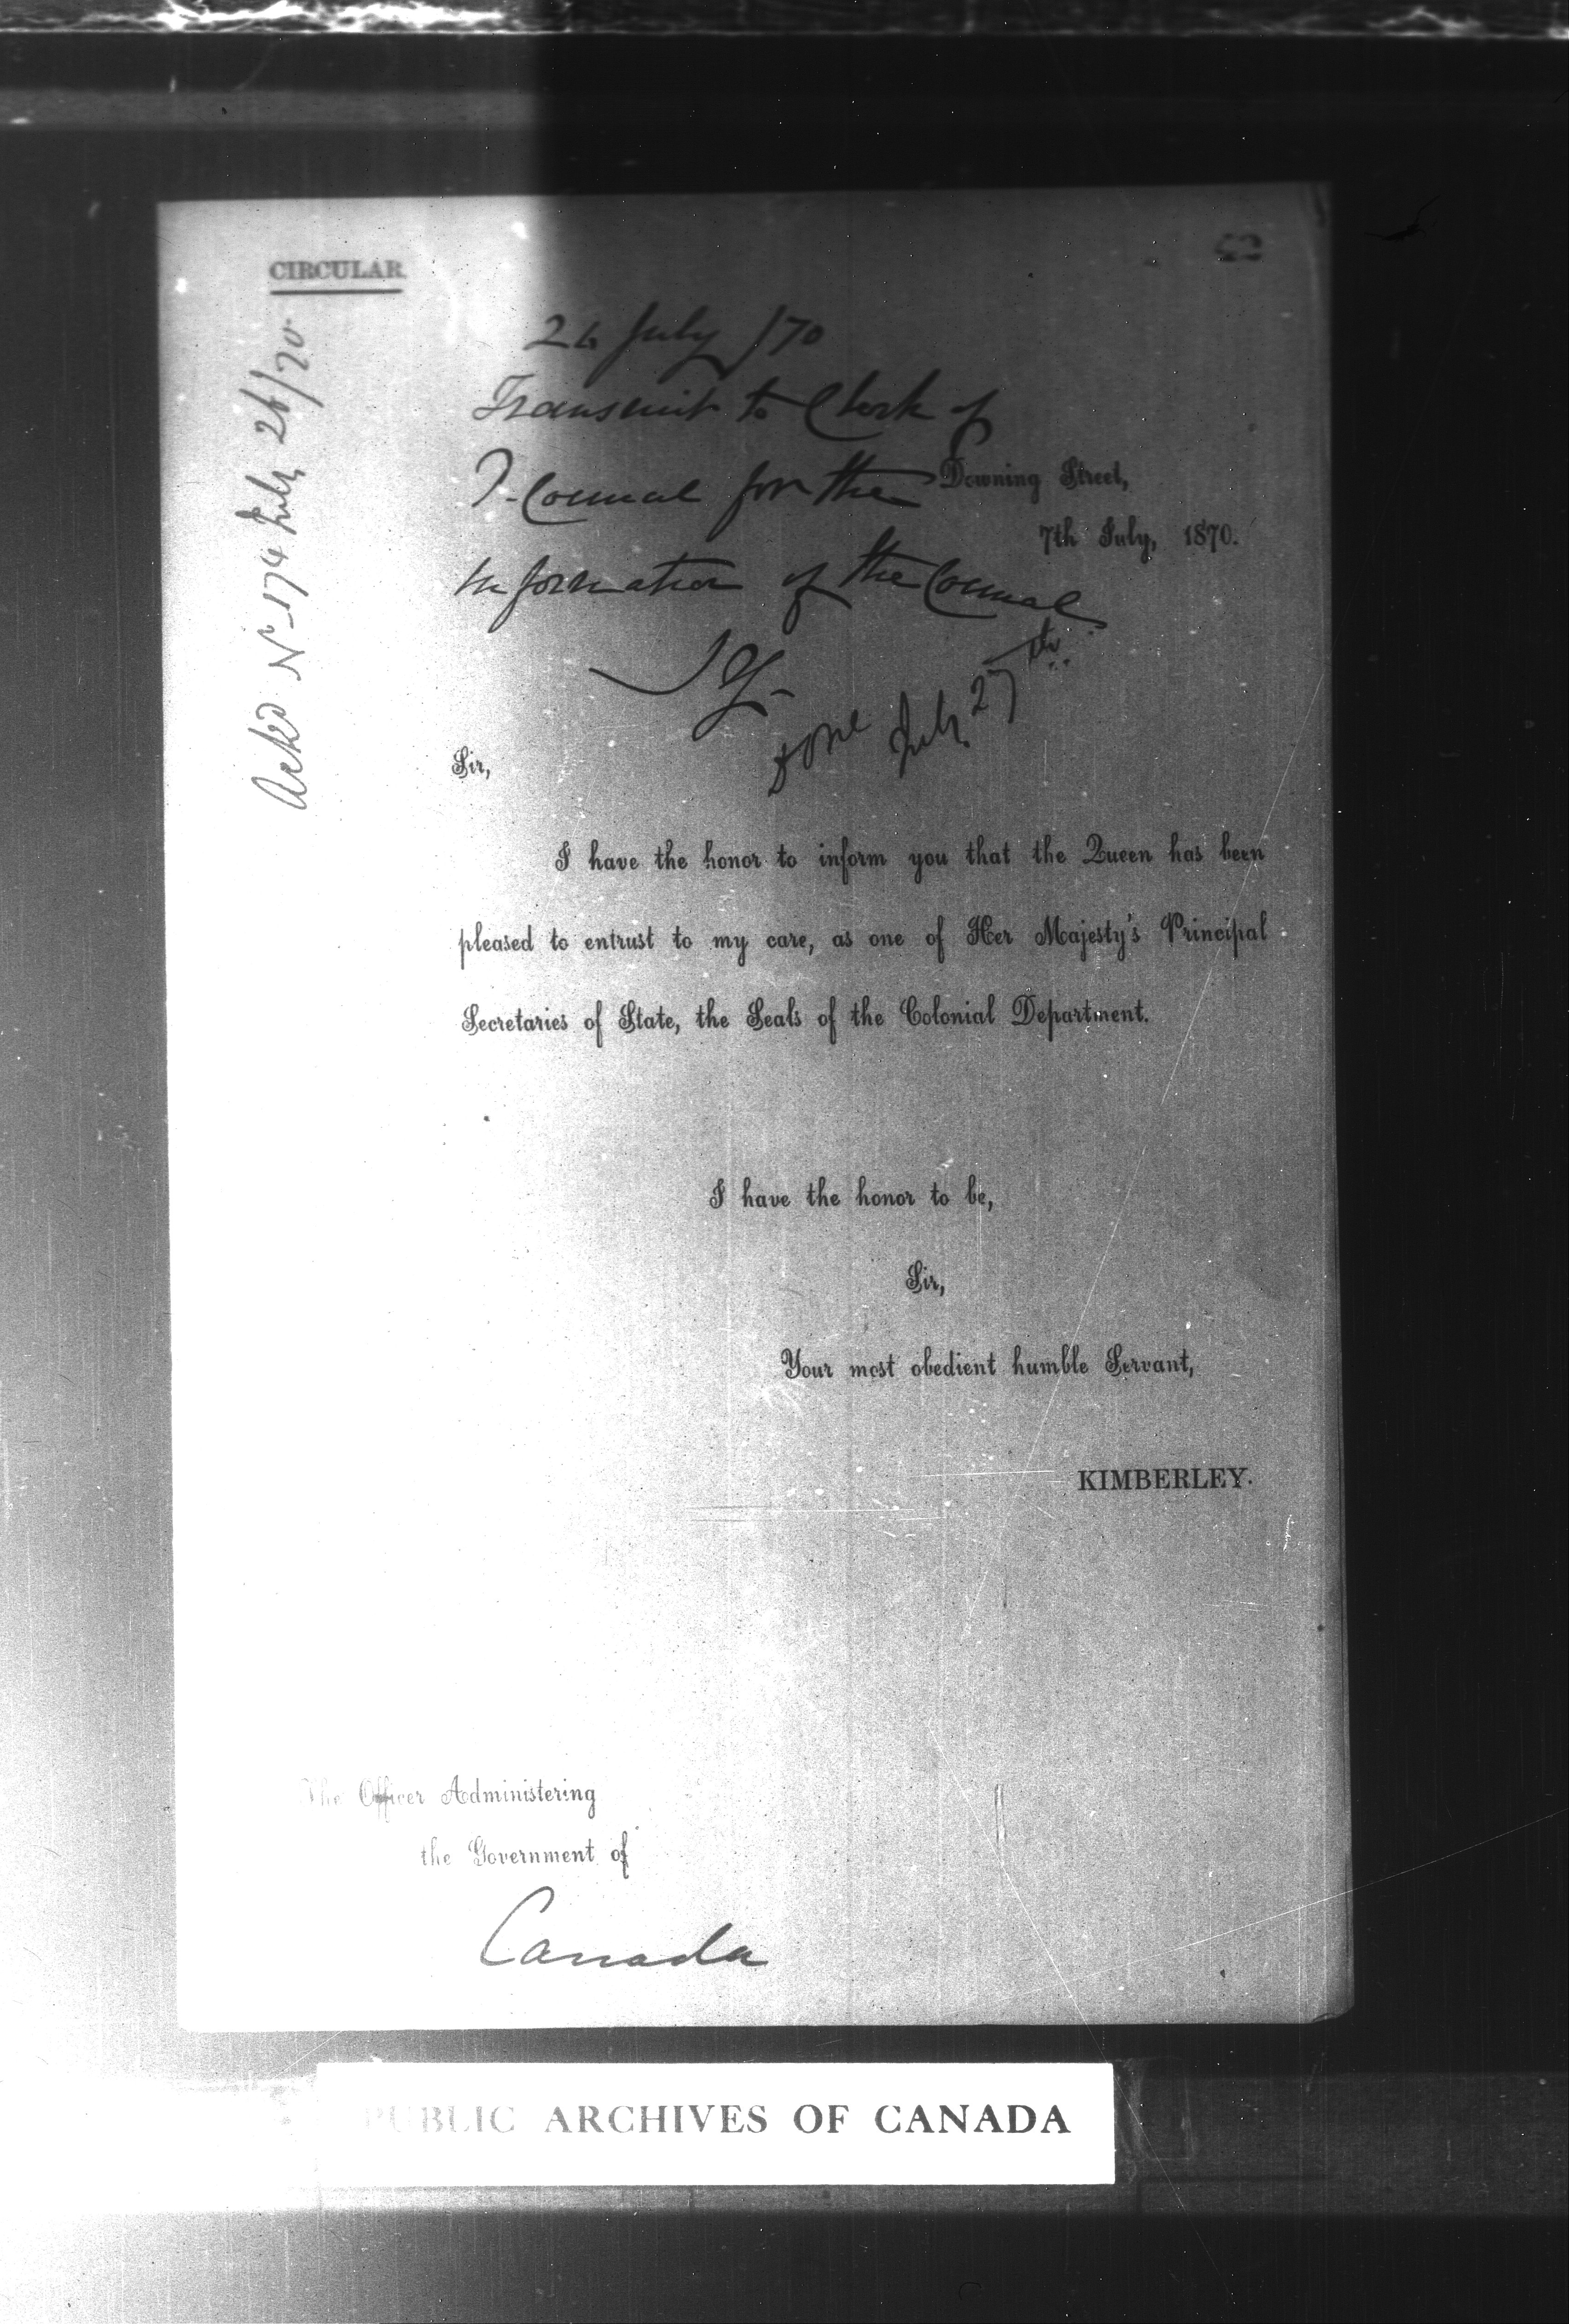 CIRCULAR
26 July /70
Transmit to Clerk of
P. Council for the
Information of the Council
Done July 27th
Ackd No 174 July 26/70
Downing Street,
7th July, 1870.
Sir,
I have the honor to inform you that the Queen has been
pleased to entrust to my care, as one of Her Majesty's Principal
Secretaries of State, the Seals of the Colonial Department.
I have the honor to be,
Sir,
Your most obedient humble Servant,
KIMBERLEY.
The Officer Administering
the Government of
Canada
PUBLIC ARCHIVES OF CANADA